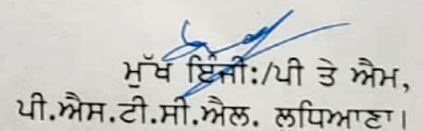 ਮੁੱਖ ਇੰਜੀ:/ਪੀ ਤੇ ਐਮ,
ਪੀ.ਐਸ.ਟੀ.ਸੀ.ਐਲ. ਲੁਧਿਆਣਾ।